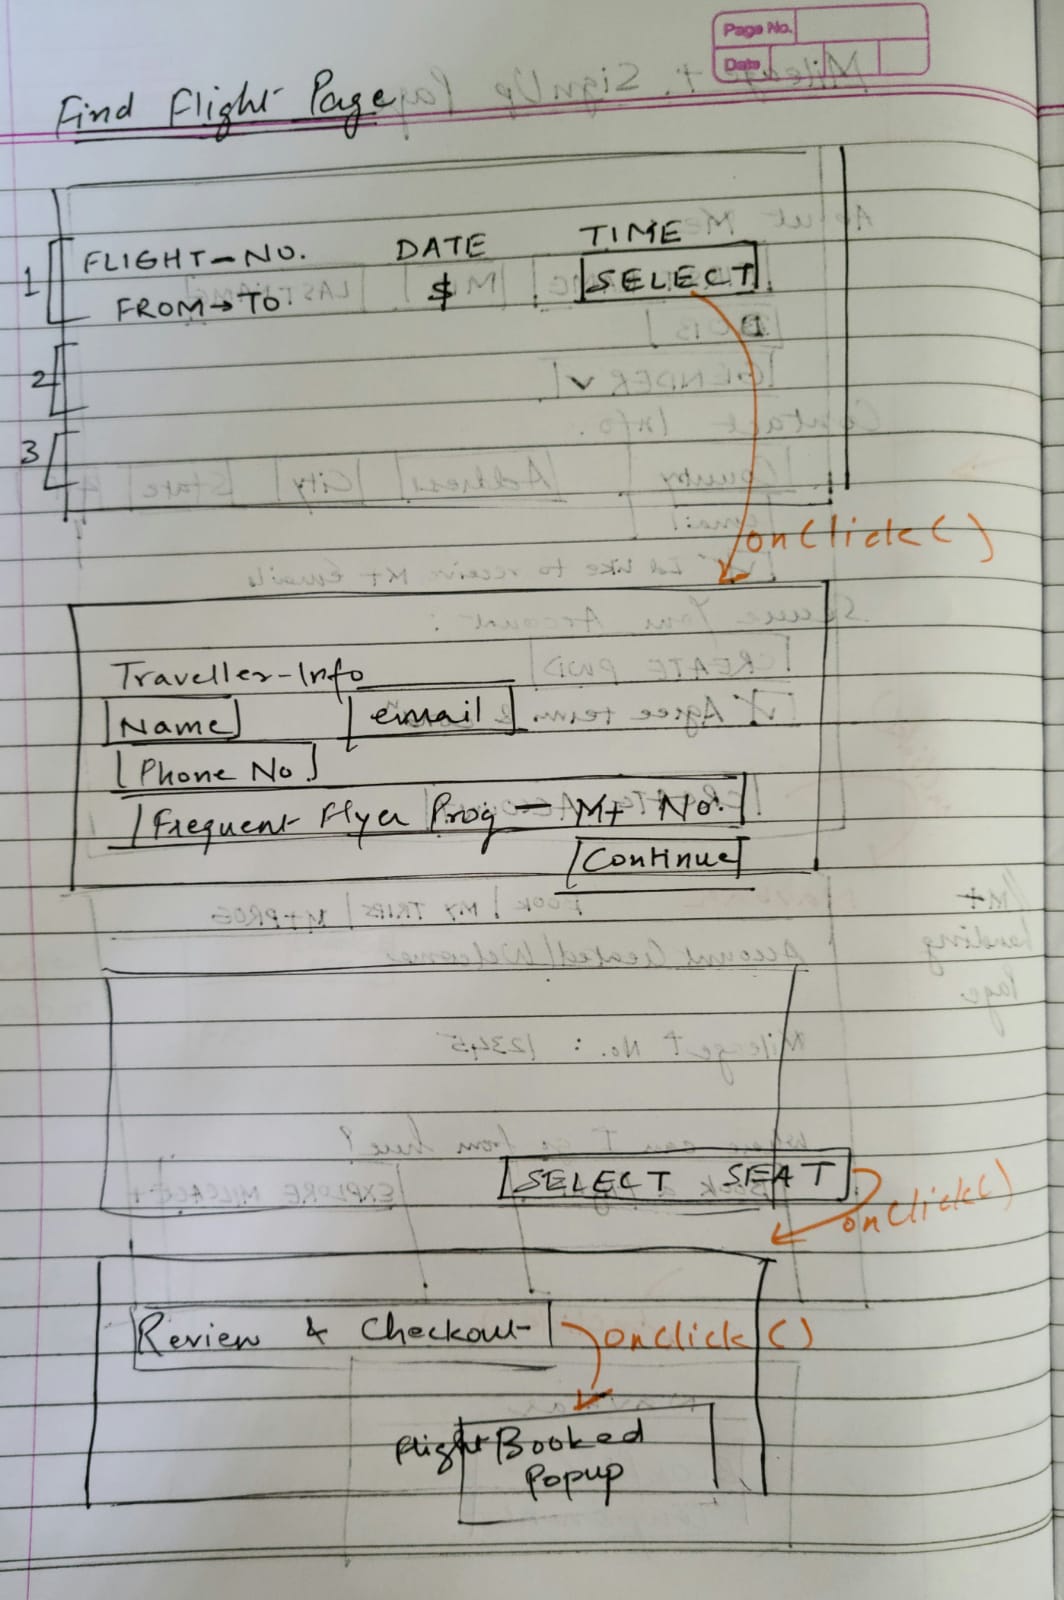 Page No.
Date
Find Flight Page
1 FLIGHT-NO. DATE TIME
FROM→TO $ SELECT
2
3
onClick()
Traveller-Info
Name email
Phone No
Frequent Flyer Prog - M+ No.
Continue
SELECT SEAT
onClick()
Review & Checkout onClick()
Flight Booked
Popup